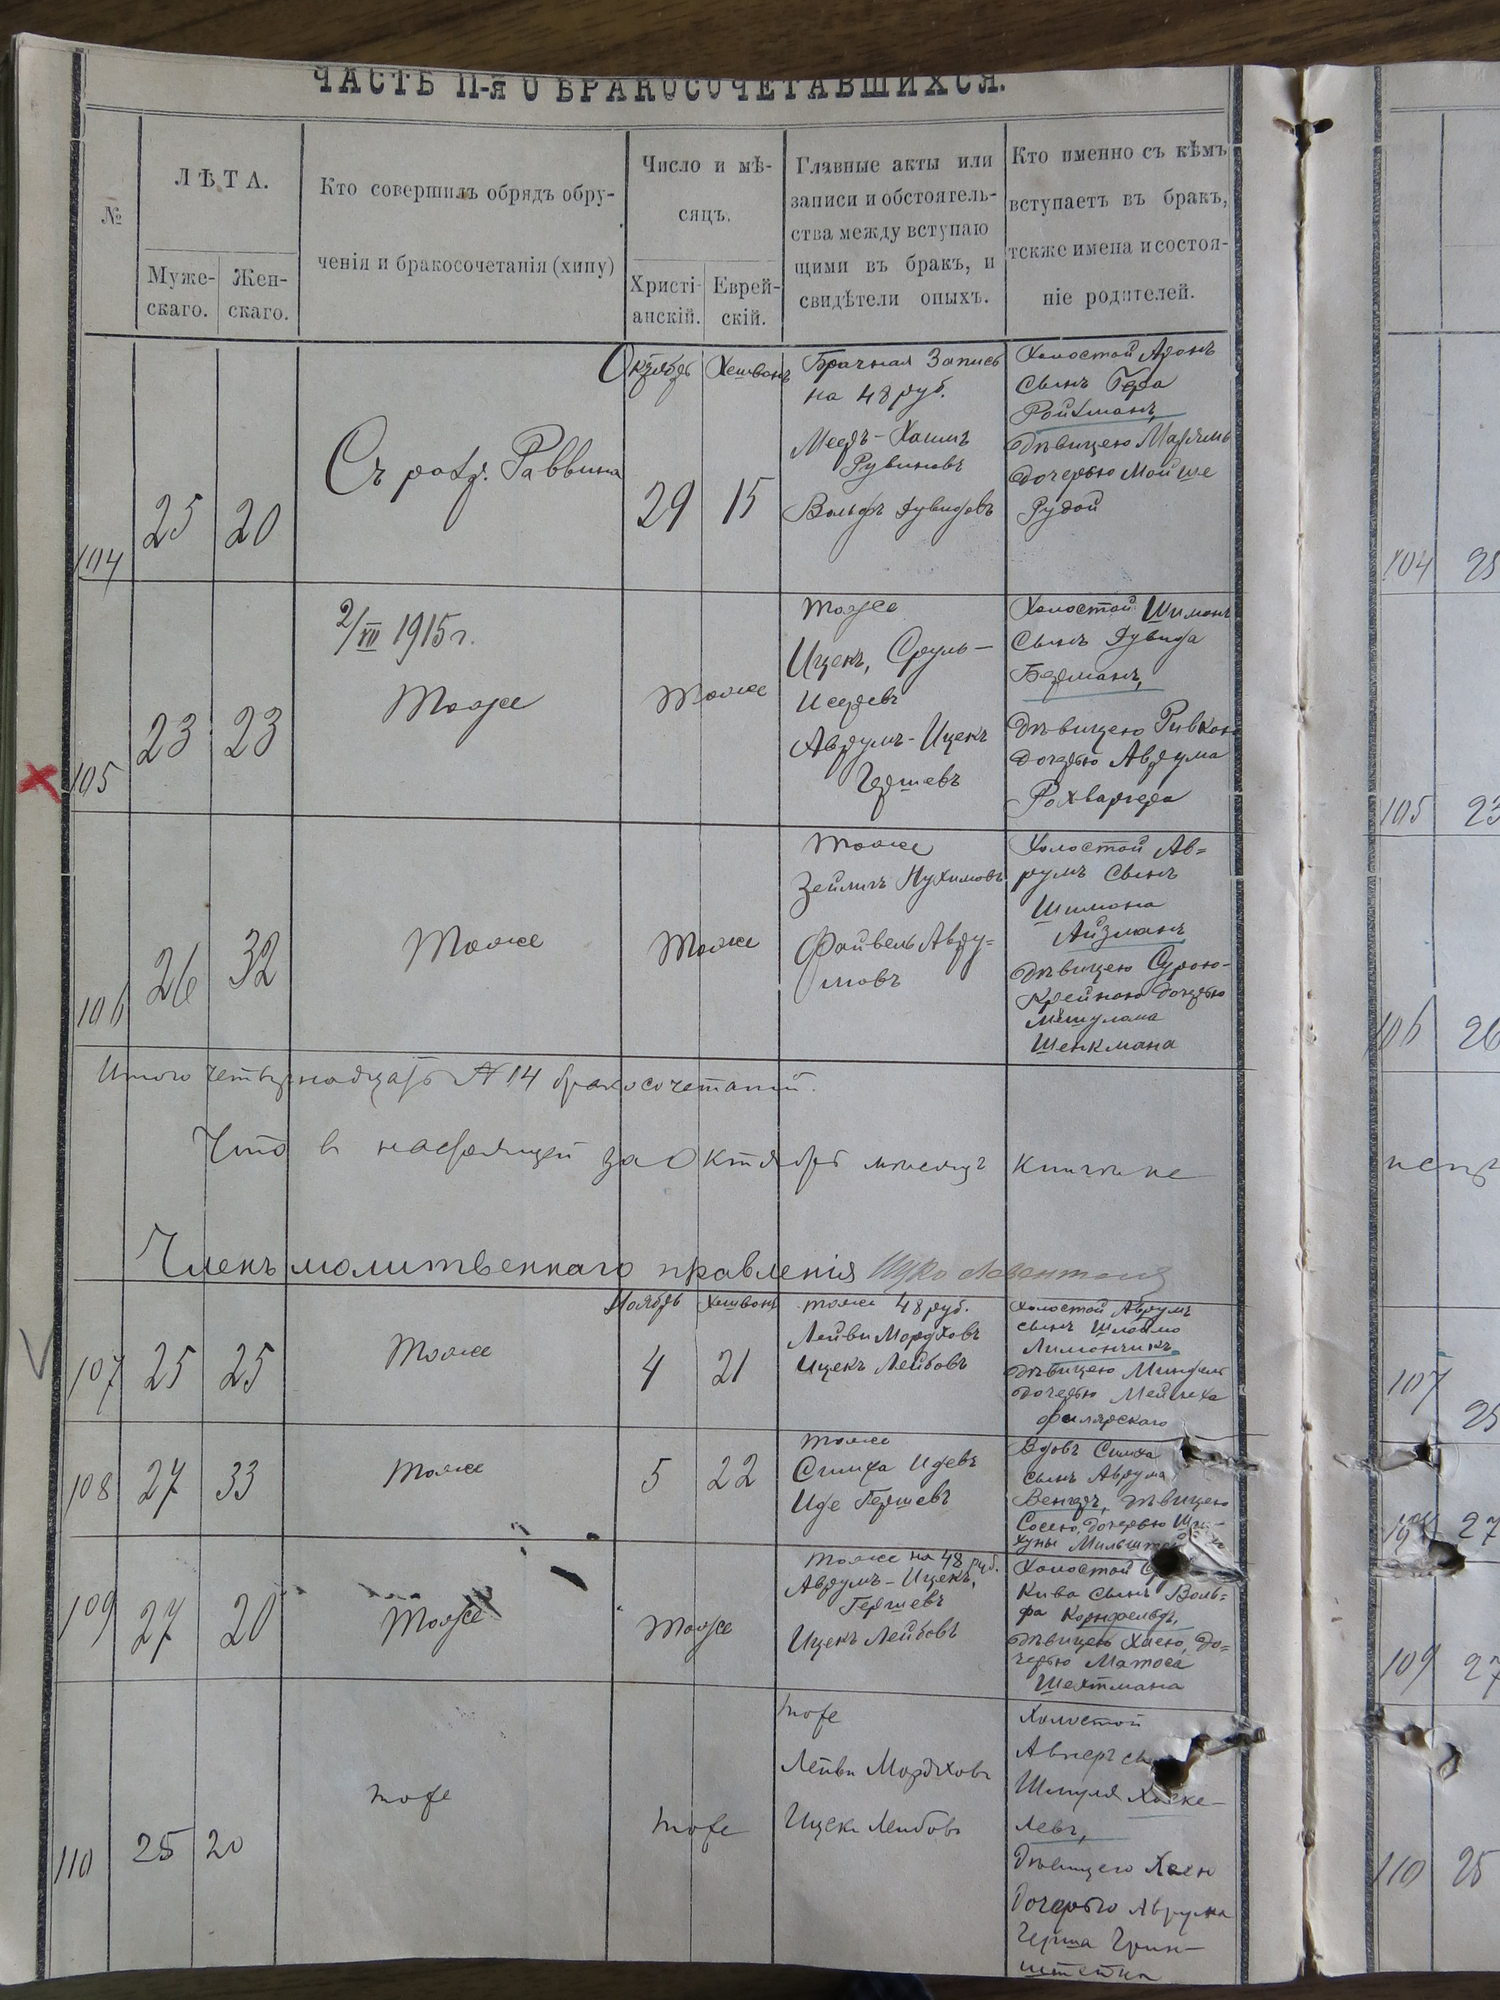 ЧАСТЬ II-я О БРАКОСОЧЕТАВШИХСЯ.
№
ЛѢТА.
Муже-
скаго.
Жен-
скаго.
Кто совершилъ обрядъ обру-
ченія и бракосочетанія (хипу)
Число и мѣ-
сяцъ.
Христі-
анскій.
Еврей-
скій.
Главные акты или
записи и обстоятель-
ства между вступаю
щими въ бракъ, и
свидѣтели оныхъ.
Кто именно съ кѣмъ
вступаетъ въ бракъ,
тскже имена и состоя-
ніе родителей.
104
25
20
Съ разр. Раввина
Октябрь
29
Хешвонъ
15
Брачная Запись
на 48 руб.
Мееръ-Хаимъ
Рувиновъ
Вольфъ Дувидовъ
Холостой Аронъ
сынъ Гера
Ройхманъ,
дѣвицею Марямъ
дочерью Мойше
Рудой
105
23
23
2/XII 1915 г.
Тоже
Тоже
Тоже
Ицекъ, Сруль-
Исеревъ
Аврумъ-Ицекъ
Гершевъ
Холостой Шимонъ
сынъ Дувида
Берманъ,
дѣвицею Ривкою
дочерью Аврума
Рохваргера
106
26
32
Тоже
Тоже
Тоже
Зейликъ Нухимовъ
Файвель Авру=
мовъ
Холостой Ав=
румъ сынъ
Шимона
Айзманъ
дѣвицею Сурою-
Крейною дочерью
Мешулама
Шенкмана
Итого четырнадцать № 14 бракосочетаній.
Что в настоящей за Октябрь мѣсяцъ книги не
Членъ молитвеннаго правленія
107
25
25
Тоже
Ноябрь
4
Хешвонъ
21
тоже 48 руб.
Лейви Мордховъ
Ицекъ Лейбовъ
Холостой Аврумъ
сынъ Шлоймо
Лимончикъ.
дѣвицею
дочерью Мейлеха
Фалярскаго
108
27
33
Тоже
5
22
Тоже
Симха Идевъ
Иде Гершевъ
Вдовъ Симха
сынъ Аврума
Венгеръ, дѣвицею
Сосею, дочерью
109
27
20
Тоже
Тоже
Тоже на 48 руб.
Аврумъ-Ицекъ,
Гершевъ
Ицекъ Лейбовъ
Холостой
Кива сынъ Воль=
фа Корнфельдъ,
дѣвицею Хаею, до=
черью Матоса
Шехтмана
110
25
20
тоже
тоже
тоже
Лейви Мордховъ
Ицекъ Лейбовъ
Холостой
Авнеръ
Шмуля Хаске-
левъ,
дѣвицею Хаею
дочерью Аврума
Герша Грин-
штейна
104
105
106
26
107
108
27
109
110
25